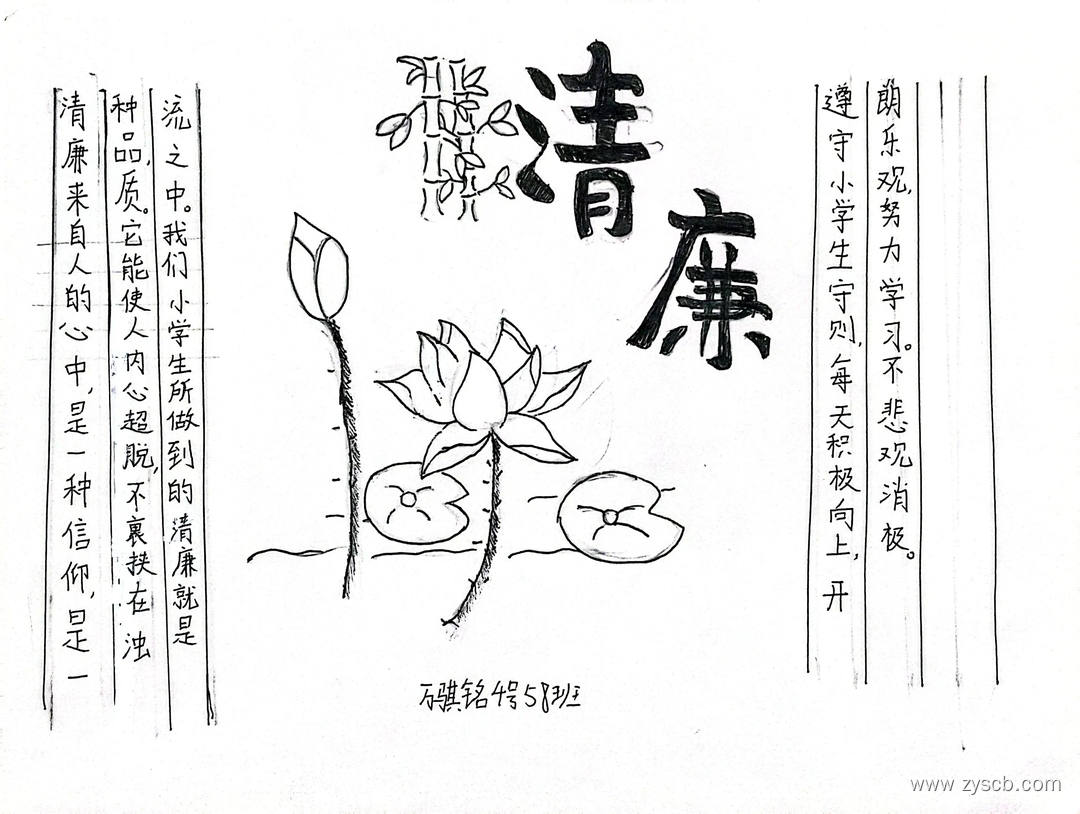 清廉
清廉来自人的心中，是一种信仰，是一
种品质。它能使人内心超脱，不裹挟在浊
流之中。我们小学生所做到的清廉就是
遵守小学生守则，每天积极向上，开
朗乐观，努力学习。不悲观消极。
万骐铭4号58班
www.zyscb.com